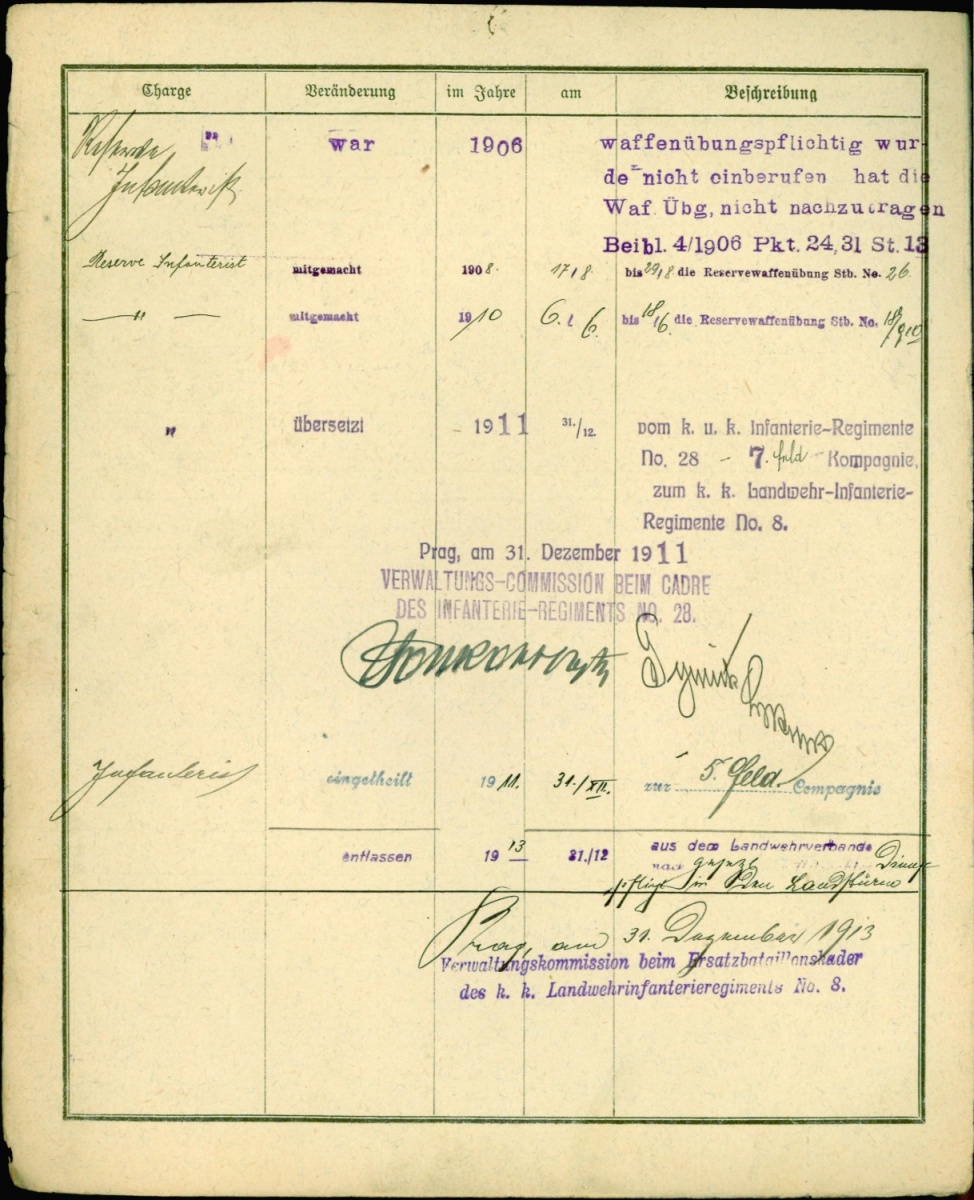 Charge Veränderung im Jahre am Beschreibung
Reserve war 1906 waffenübungspflichtig wur-
Infanterist de nicht einberufen hat die
Waf. Übg, nicht nachzutragen
Beibl. 4/1906 Pkt. 24,31 St. 13
Reserve Infanterist mitgemacht 1908. 17/8 bis 29/8 die Reservewaffenübung Stb. No. 26
— " — mitgemacht 1910 6./6. bis 18/6. die Reservewaffenübung Stb. No.
" übersetzt 1911 31./12. vom k. u. k. Infanterie-Regimente
No. 28 - 7. feld Kompagnie,
zum k. k. Landwehr-Infanterie-
Regimente No. 8.
Prag, am 31. Dezember 1911
VERWALTUNGS-COMMISSION BEIM CADRE
DES INFANTERIE-REGIMENTS NO. 28.
Infanterist eingetheilt 1911. 31./XII. zur 5. Feld. Compagnie
entlassen 1913 31./12 aus dem Landwehrverbande
nach
in den Landsturm
Prag, am 31. Dezember 1913
Verwaltungskommission beim Ersatzbataillonskader
des k. k. Landwehrinfanterieregiments No. 8.